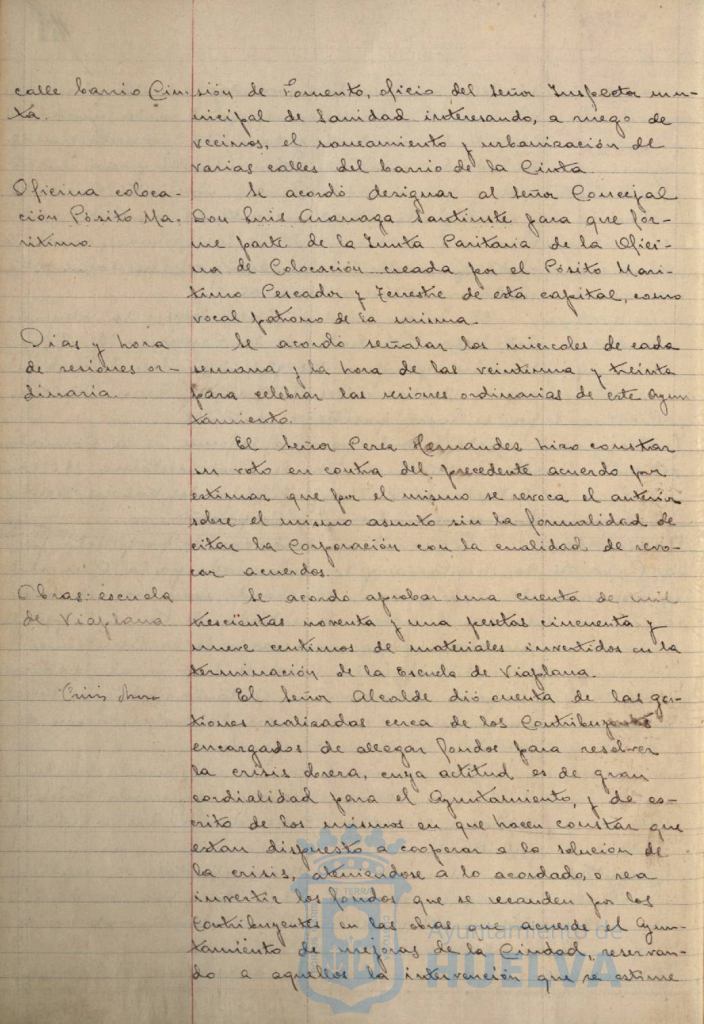 calle barrio Cin-
ta.
sión de Fomento, oficio del Señor Inspector mu-
nicipal de Sanidad interesando, a ruego de
vecinos, el saneamiento y urbanización de
varias calles del barrio de la Cinta.
Oficina coloca-
ción Pósito Ma-
rítimo.
Se acordó designar al Señor Concejal
Don Luis
para que for-
me parte de la Junta Paritaria de la Ofici-
na de Colocación creada por el Pósito Mari-
timo Pescador y Terrestre de esta capital, como
vocal patrono de la misma.
Dias y hora
de sesiones or-
dinaria.
Se acordó señalar los miercoles de cada
semana y la hora de las veintiuna y treinta
para celebrar las sesiones ordinarias de este Ayun-
tamiento.
El Señor Perez Hernandez hizo constar
su voto en contra del precedente acuerdo por
estimar que por el mismo se revoca el anterior
sobre el mismo asunto sin la formalidad de
citar la Corporación con la cualidad de revo-
car acuerdos.
Obras: escuela
de Viaplana
Se acordo aprobar una cuenta de mil
trescientas noventa y una pesetas cincuenta y
nueve centimos de materiales invertidos en la
terminación de la Escuela de Viaplana.
Crisis obrera
El Señor Alcalde dió cuenta de las ges-
tiones realizadas cerca de los Contribuyentes
encargados de allegar fondos para resolver
la crisis obrera, cuya actitud es de gran
cordialidad para el Ayuntamiento, y de es-
crito de los mismos en que hacen constar que
estan dispuesto a cooperar a la solución de
la crisis, ateniendose a lo acordado, o sea
invertir los fondos que se recauden por los
Contribuyentes en las obras que acuerde el Ayun-
tamiento de mejoras de la Ciudad, reservan-
do a aquellos la intervención que se estime
Ayuntamiento de
HUELVA